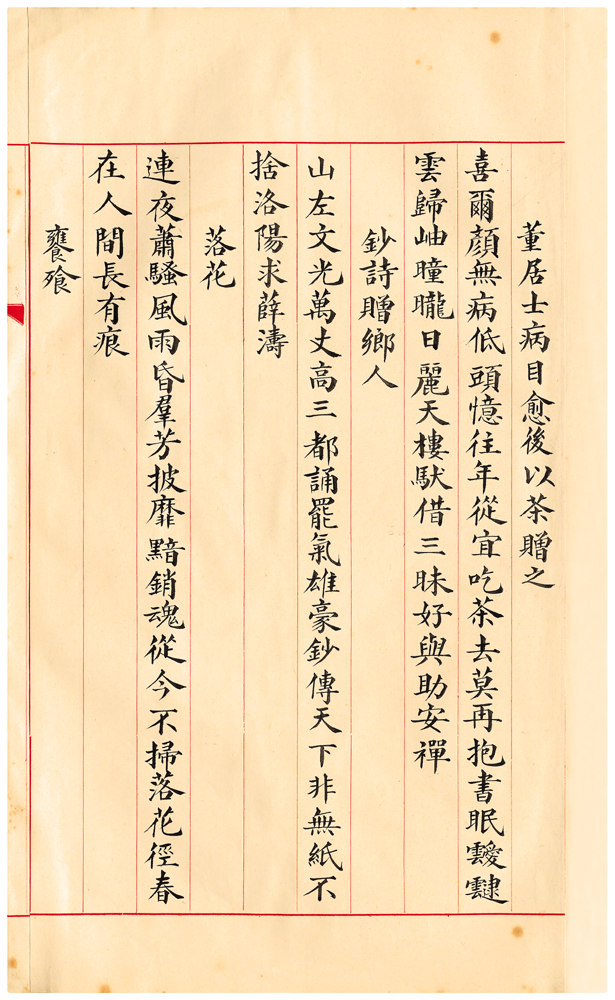 董居士病目愈後以茶贈之
喜爾顏無病低頭憶往年從宜吃茶去莫再抱書眠靉靆
雲歸岫曈曨日麗天樓馱借三昧好與助安禪
鈔詩贈鄉人
山左文光萬丈高三都誦罷氣雄豪鈔傳天下非無紙不
捨洛陽求薛濤
落花
連夜蕭騷風雨昏羣芳披靡黯銷魂從今不掃落花徑春
在人間長有痕
饔飧